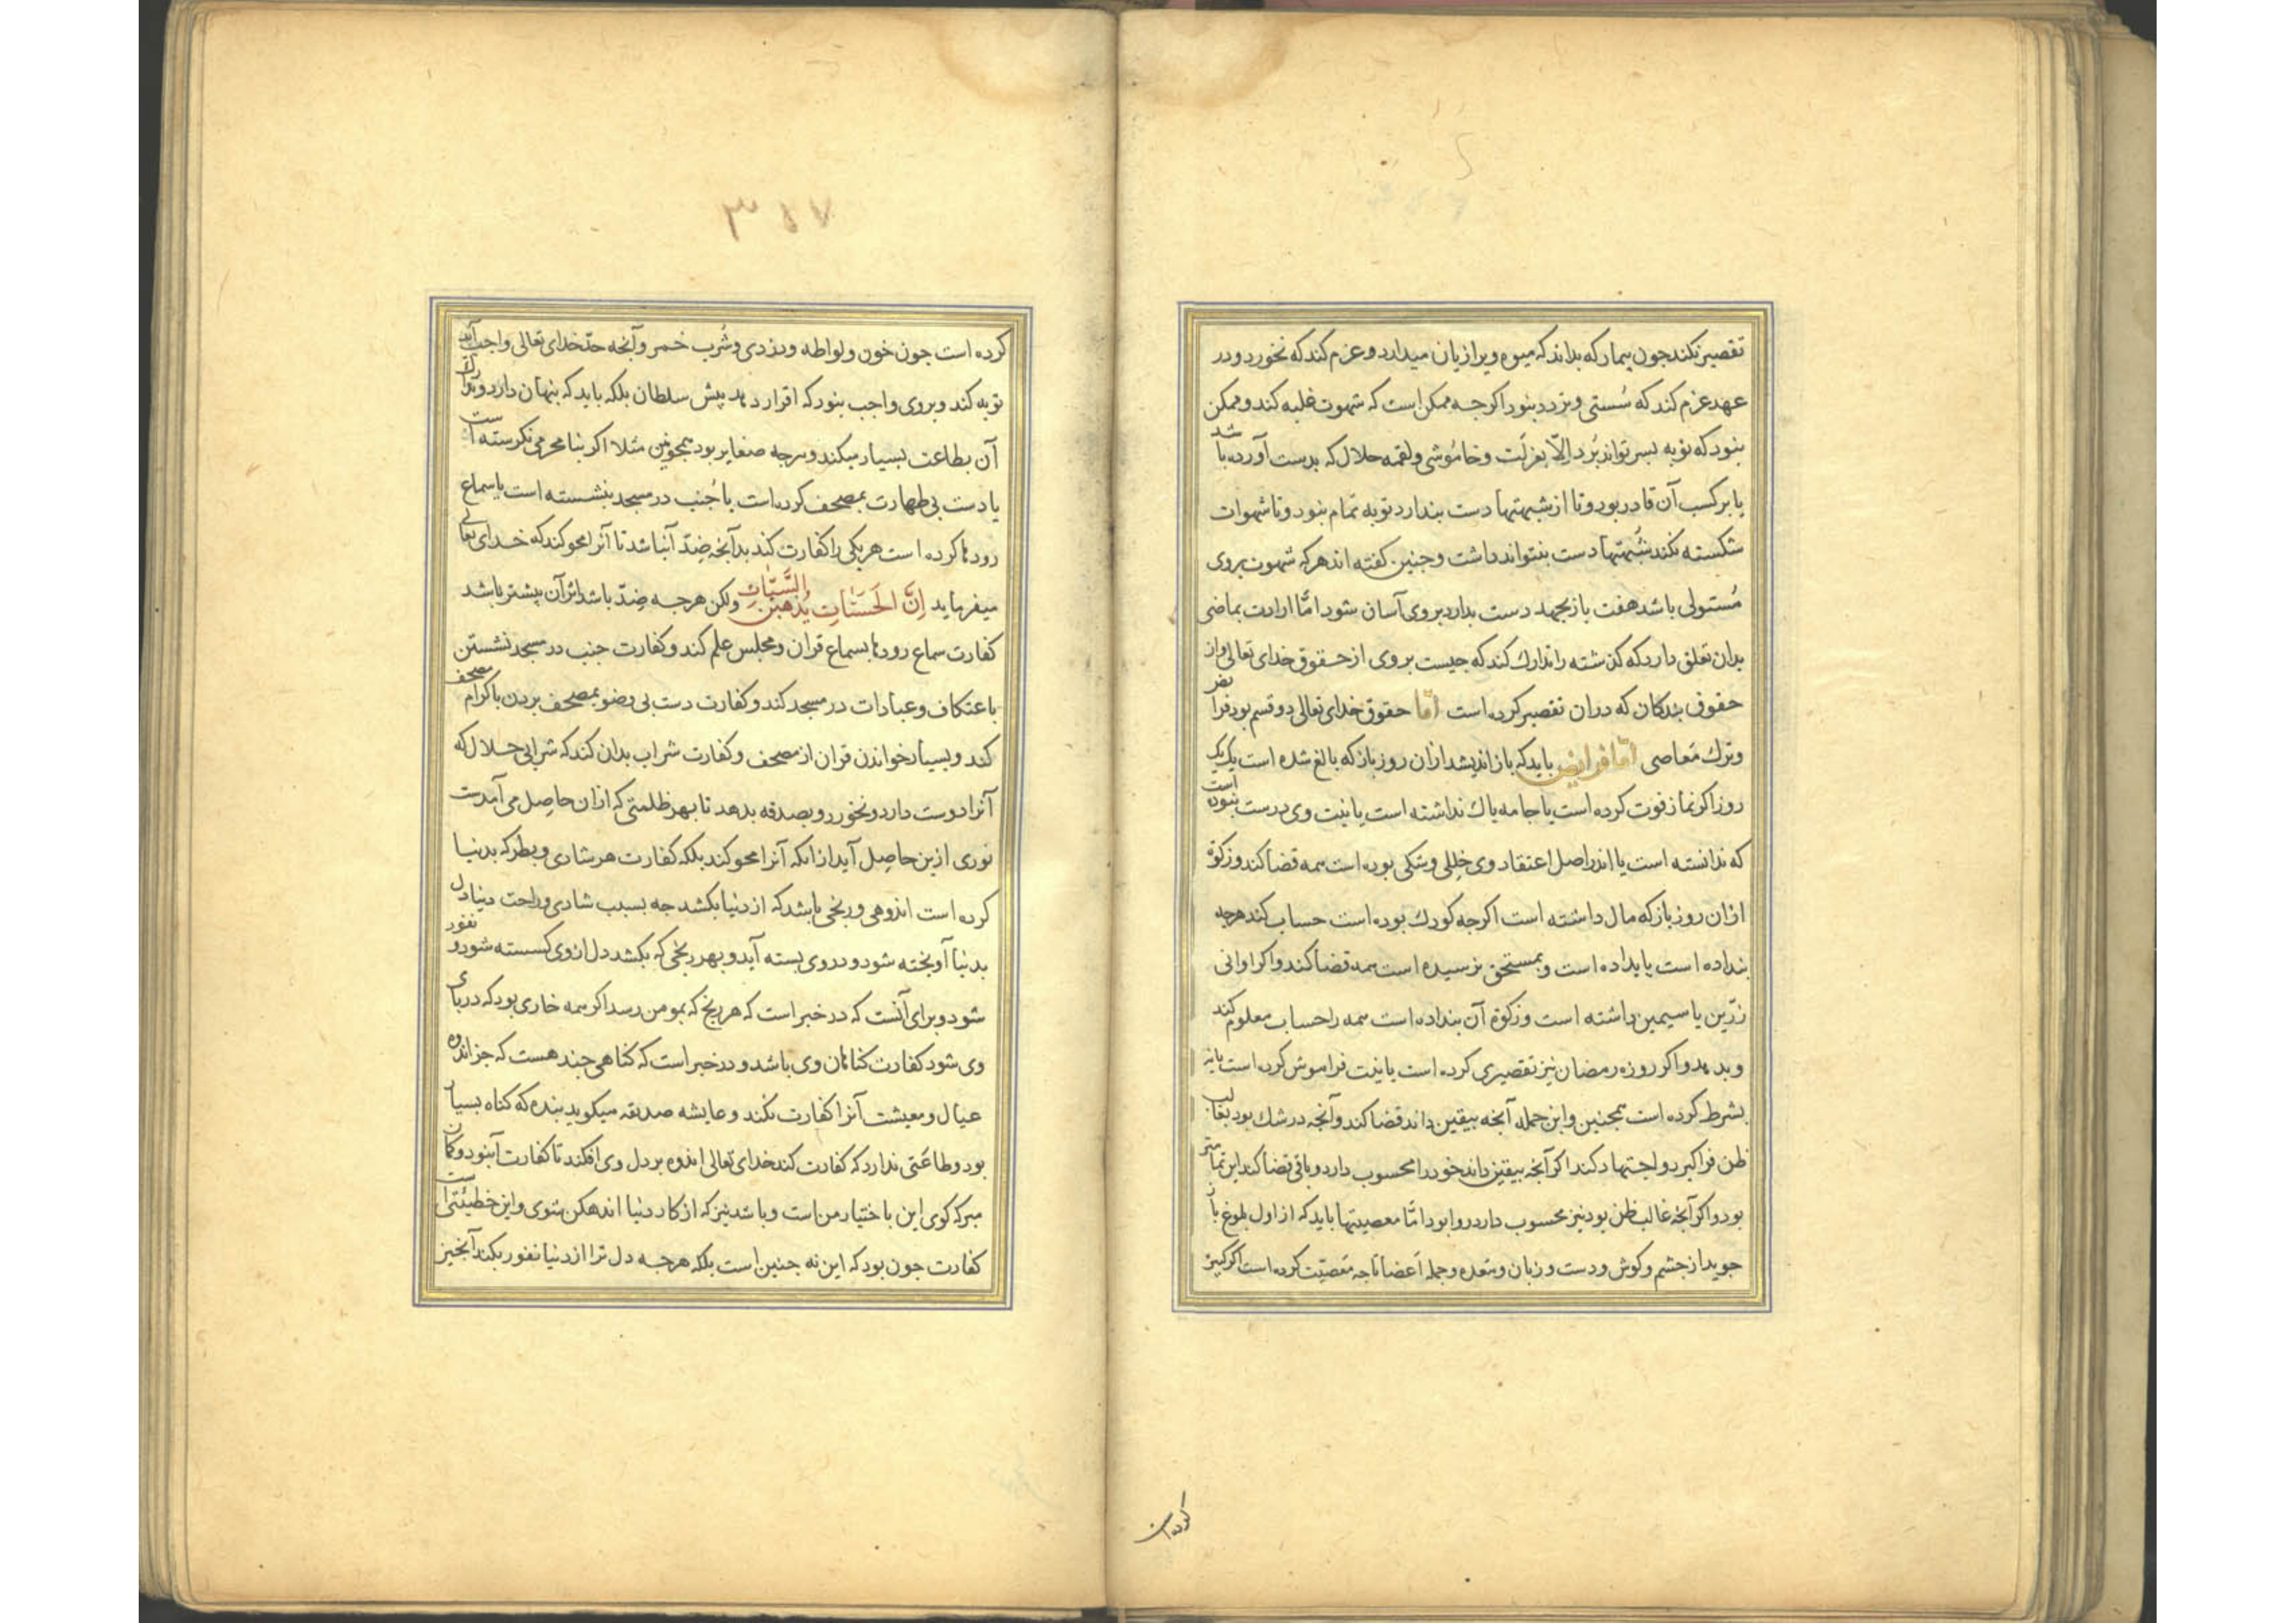 تقصیر نکند جون بیمار که بداند که میوه ویرا زیان میدارد و عزم کند که نخورد و در
عهد عزم کند که سُستی و تردد نبود اکرجه ممکن است که شهوت غلبه کند و ممکن
نبود که توبه بسر تواند بُرد الّا بعزلت و خاموشی و لقمه حلال که بدست آورده باشد
یا بر کسب آن قادر بود و تا از شبهتها دست بندارد توبه تمام نبود و تا شهوات
شکسته نکند شُبهتها دست بنتواند داشت و جنین کفته اند هرکه شهوت بروی
مُستولی باشد هفت باز بجهد دست بدارد بروی آسان شود امّا ارادت بماضی
بدان تعلق دارد که کذشته را تدارك کند که جیست بروی از حقوق خدای تعالی و از
حقوق بندکان که دران تقصیر کرده است امّا حقوق خدای تعالی دو قسم بود فرایض
و ترك مَعاصی امّا فرایض باید که باز اندیشد ازان روز باز که بالغ شده است یک یک
روز اکر نماز فوت کرده است یا جامه باك نداشته است یا نیت وی درست نبوده است
که ندانسته است یا اندر اصل اعتقاد وی خللی و شکی بوده است همه قضا کند و زکوة
ازان روز باز که مال داشته است اکرجه کودك بوده است حساب کند هرجه
بنداده است یا بداده است و بمستحق نرسیده است همه قضا کند و اکر اوانی
زرّین یا سیمین داشته است و زکوة آن بنداده است همه را حساب معلوم کند
و بدهد و اکر روزه رمضان نیز تقصیری کرده است یا نیت فراموش کرده است یا نه
بشرط کرده است همجنین و ازین جمله آنجه بیقین داند قضا کند و آنجه در شك بود بغالب
ظن فرا کیرد و اجتهاد کند اکر آنجه بیقین داند خود را محسوب دارد و باقی قضا کند این تمامتر
بود و اکر آنجه غالب ظن بود نیز محسوب دارد روا بود امّا معصیتها باید که از اول بلوغ باز
جوید از جشم و کوش و دست و زبان و معده و جمله اَعضا تا جه مَعصیّت کرده است اکر کبیره
کرده است
۳۸۷
کرده است جون خون و لواطه و دزدی و شُرب خمر و آنجه حدّ خدای تعالی واجب آید
توبه کند و بروی واجب نبود که اقرار دهد پیش سلطان بلکه باید که بنهان دارد و تدارك
آن بطاعت بسیار میکند و هرجه صغایر بود همجونین مثلا اکر بنا محرمی نکرسته است
یا دست بی طهارت بمصحف کرده است یا جُنب در مسجد بنشسته است یا سماع
رودها کرده است هریکی را کفارت کند بدآنجه ضدّ آنباشد تا آنرا محو کند که خدای تعالی
میفرماید اِنَّ الحَسَنَاتِ یُذهِبنَ السَّیّاتِ ولکن هرجه ضدّ باشد اثر آن بیشتر باشد
کفارت سماع رودها بسماع قران و مجلس علم کند و کفارت جنب در مسجد نشستن
باعتکاف و عبادات در مسجد کند و کفارت دست بی وضو بمصحف بردن باکرام مصحف
کند و بسیار خواندن قران از مصحف و کفارت شراب بدان کند که شرابی حلال که
آنرا دوست دارد و نخورد و بصدقه بدهد تا بهر ظلمتی که ازان حاصِل می آمدست
نوری ازین حاصِل آید از انکه آنرا محو کند بلکه کفارت هر شادی و بطر که بدنیا
کرده است اندوهی و رنجی باشد که از دنیا بکشد جه بسبب شادی و راحت دنیا دل
بدنیا آویخته شود و در وی بسته آید و بهر رنجی که بکشد دل ازوی کسسته شود و نفور
شود و برای آنست که در خبر است که هر رنج که بمومن رسد اکر همه خاری بود که در بای
وی شود کفارت کناهان وی باشد و در خبر است که کناهی جند هست که جز اندوه
عیال و معیشت آنرا کفارت نکند و عایشه صدیقه میکوید بنده که کناه بسیار
بود و طاعَتی ندارد که کفارت کند خدای تعالی اندوه بر دل وی افکند تا کفارت آنبود و کمان
مبر که کوی این باختیار من است و باشد نیز که از کار دنیا اندهکن شوی و این خطیئتی است
کفارت جون بود که این نه جنین است بلکه هرجه دل ترا از دنیا نفور بکند آنجیز